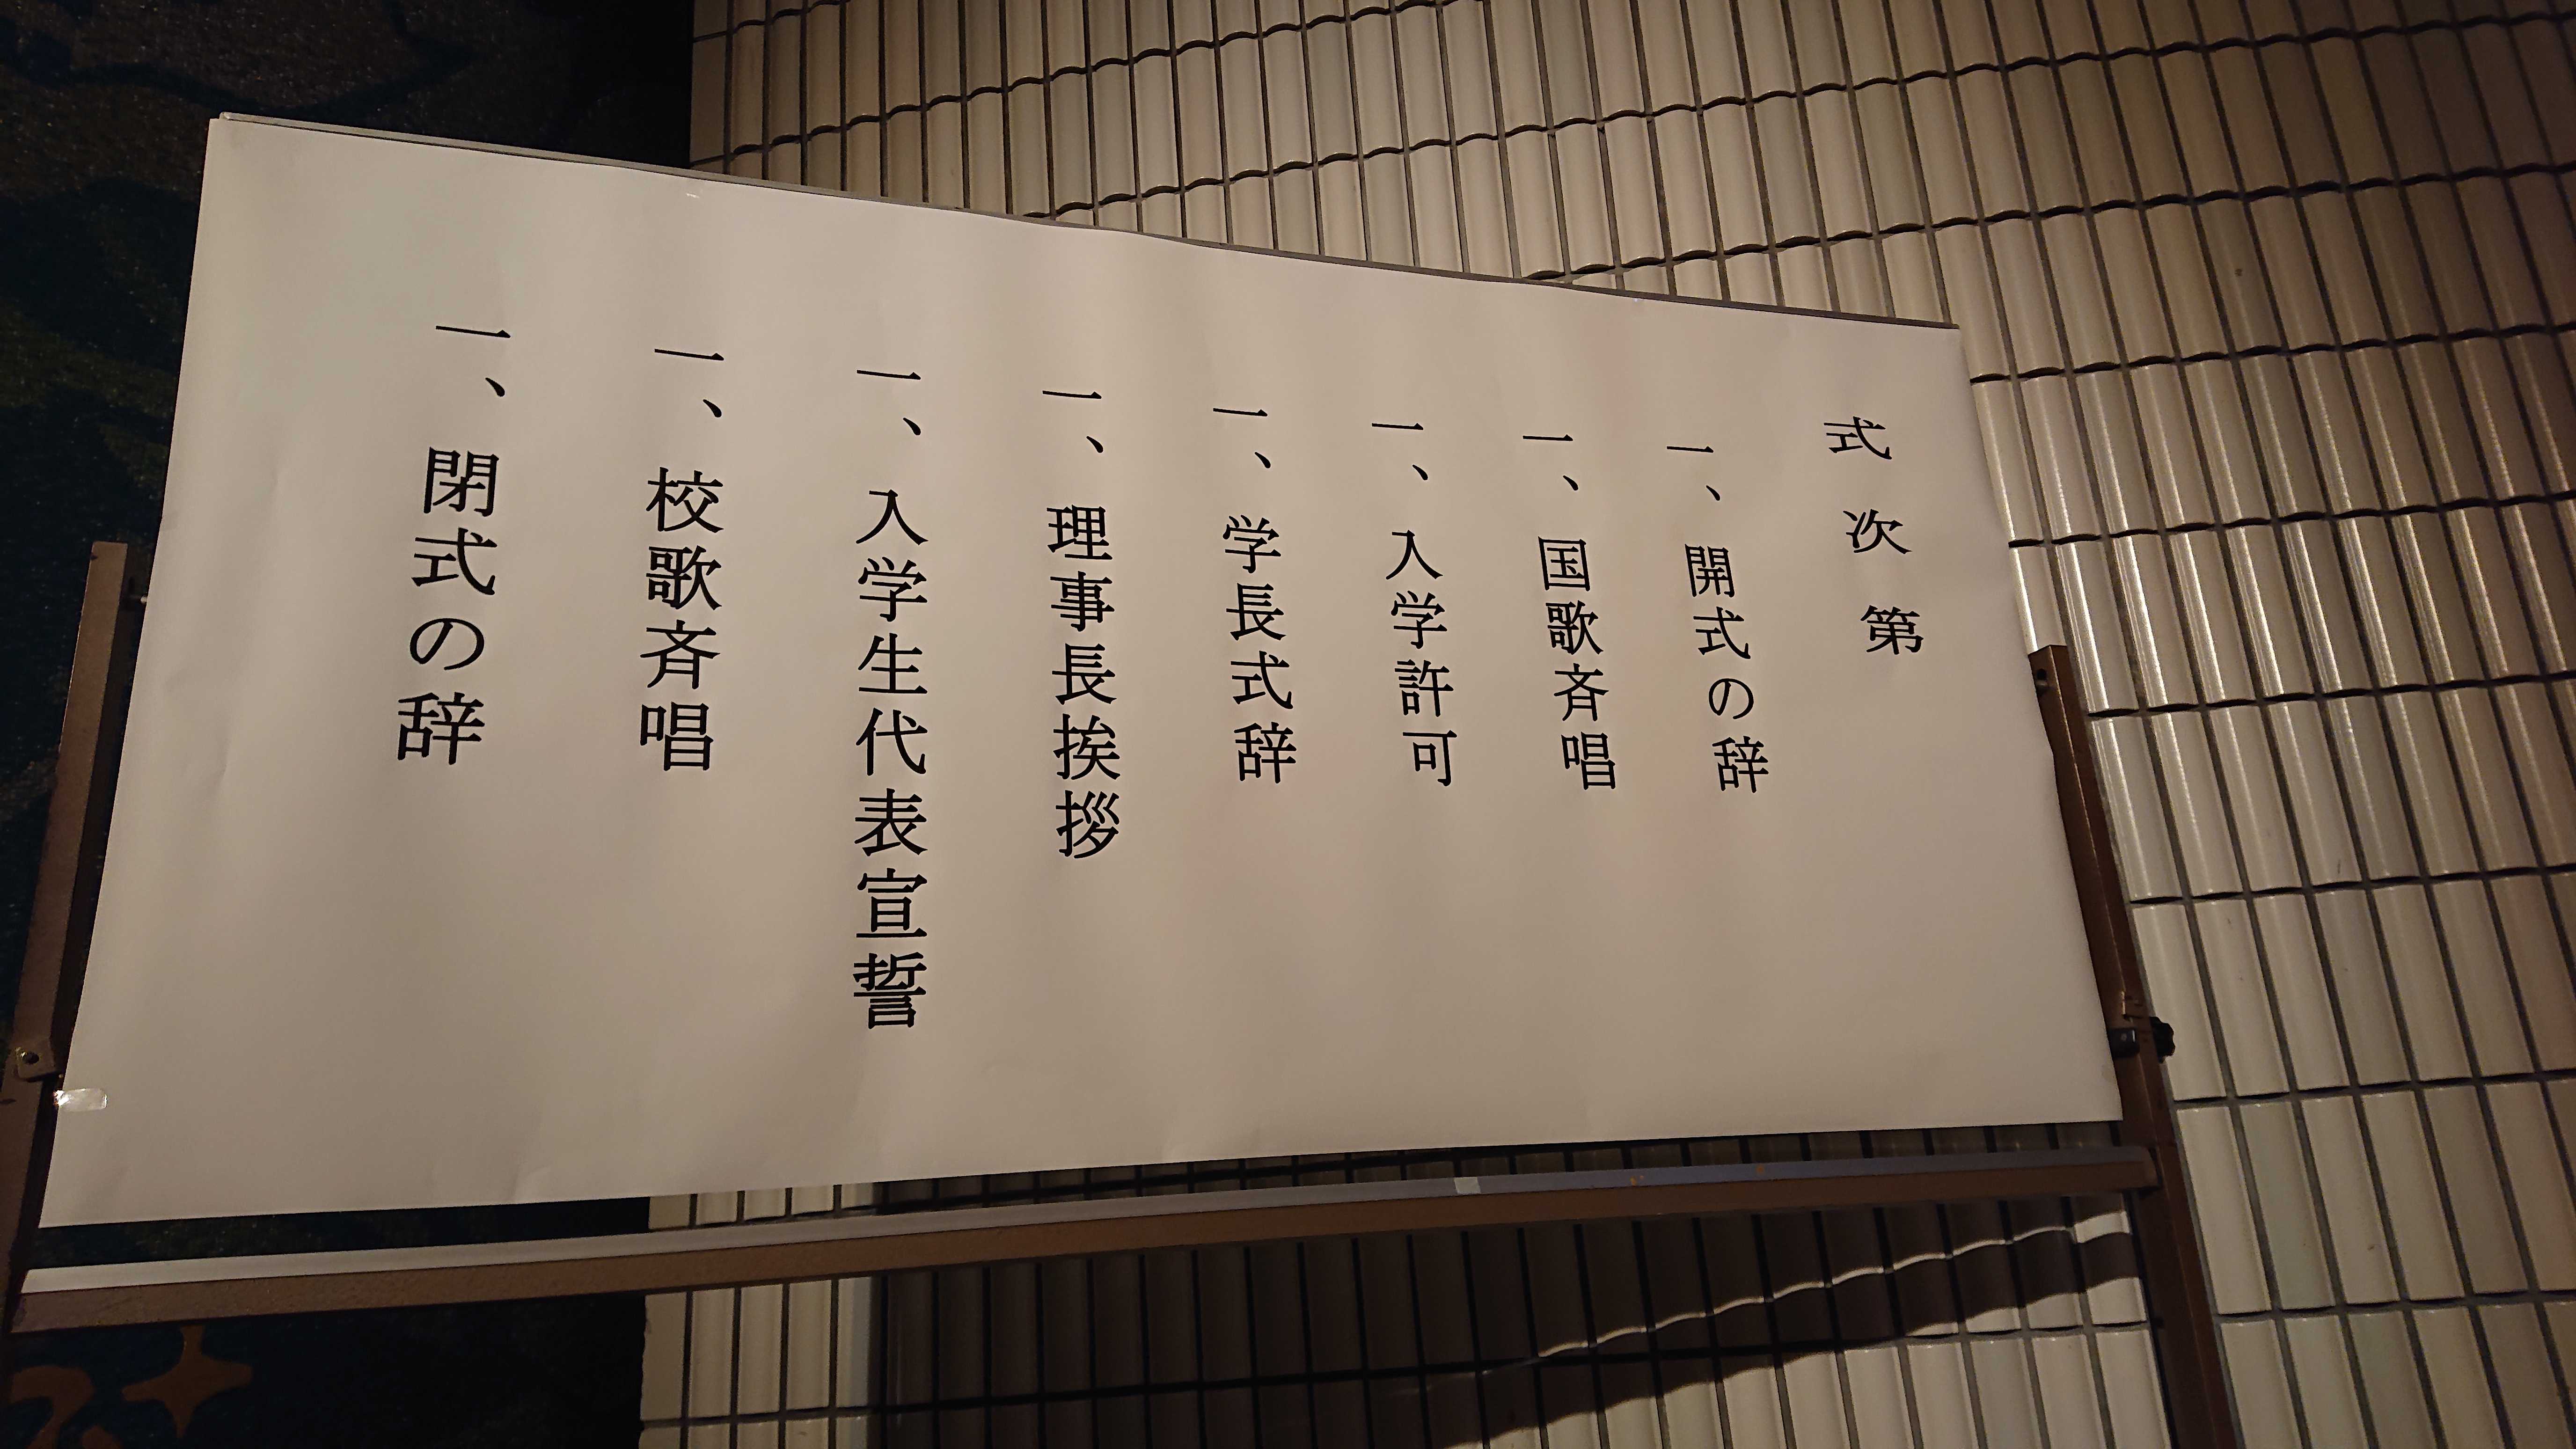 式次第
一、開式の辞
一、国歌斉唱
一、入学許可
一、学長式辞
一、理事長挨拶
一、入学生代表宣誓
一、校歌斉唱
一、閉式の辞